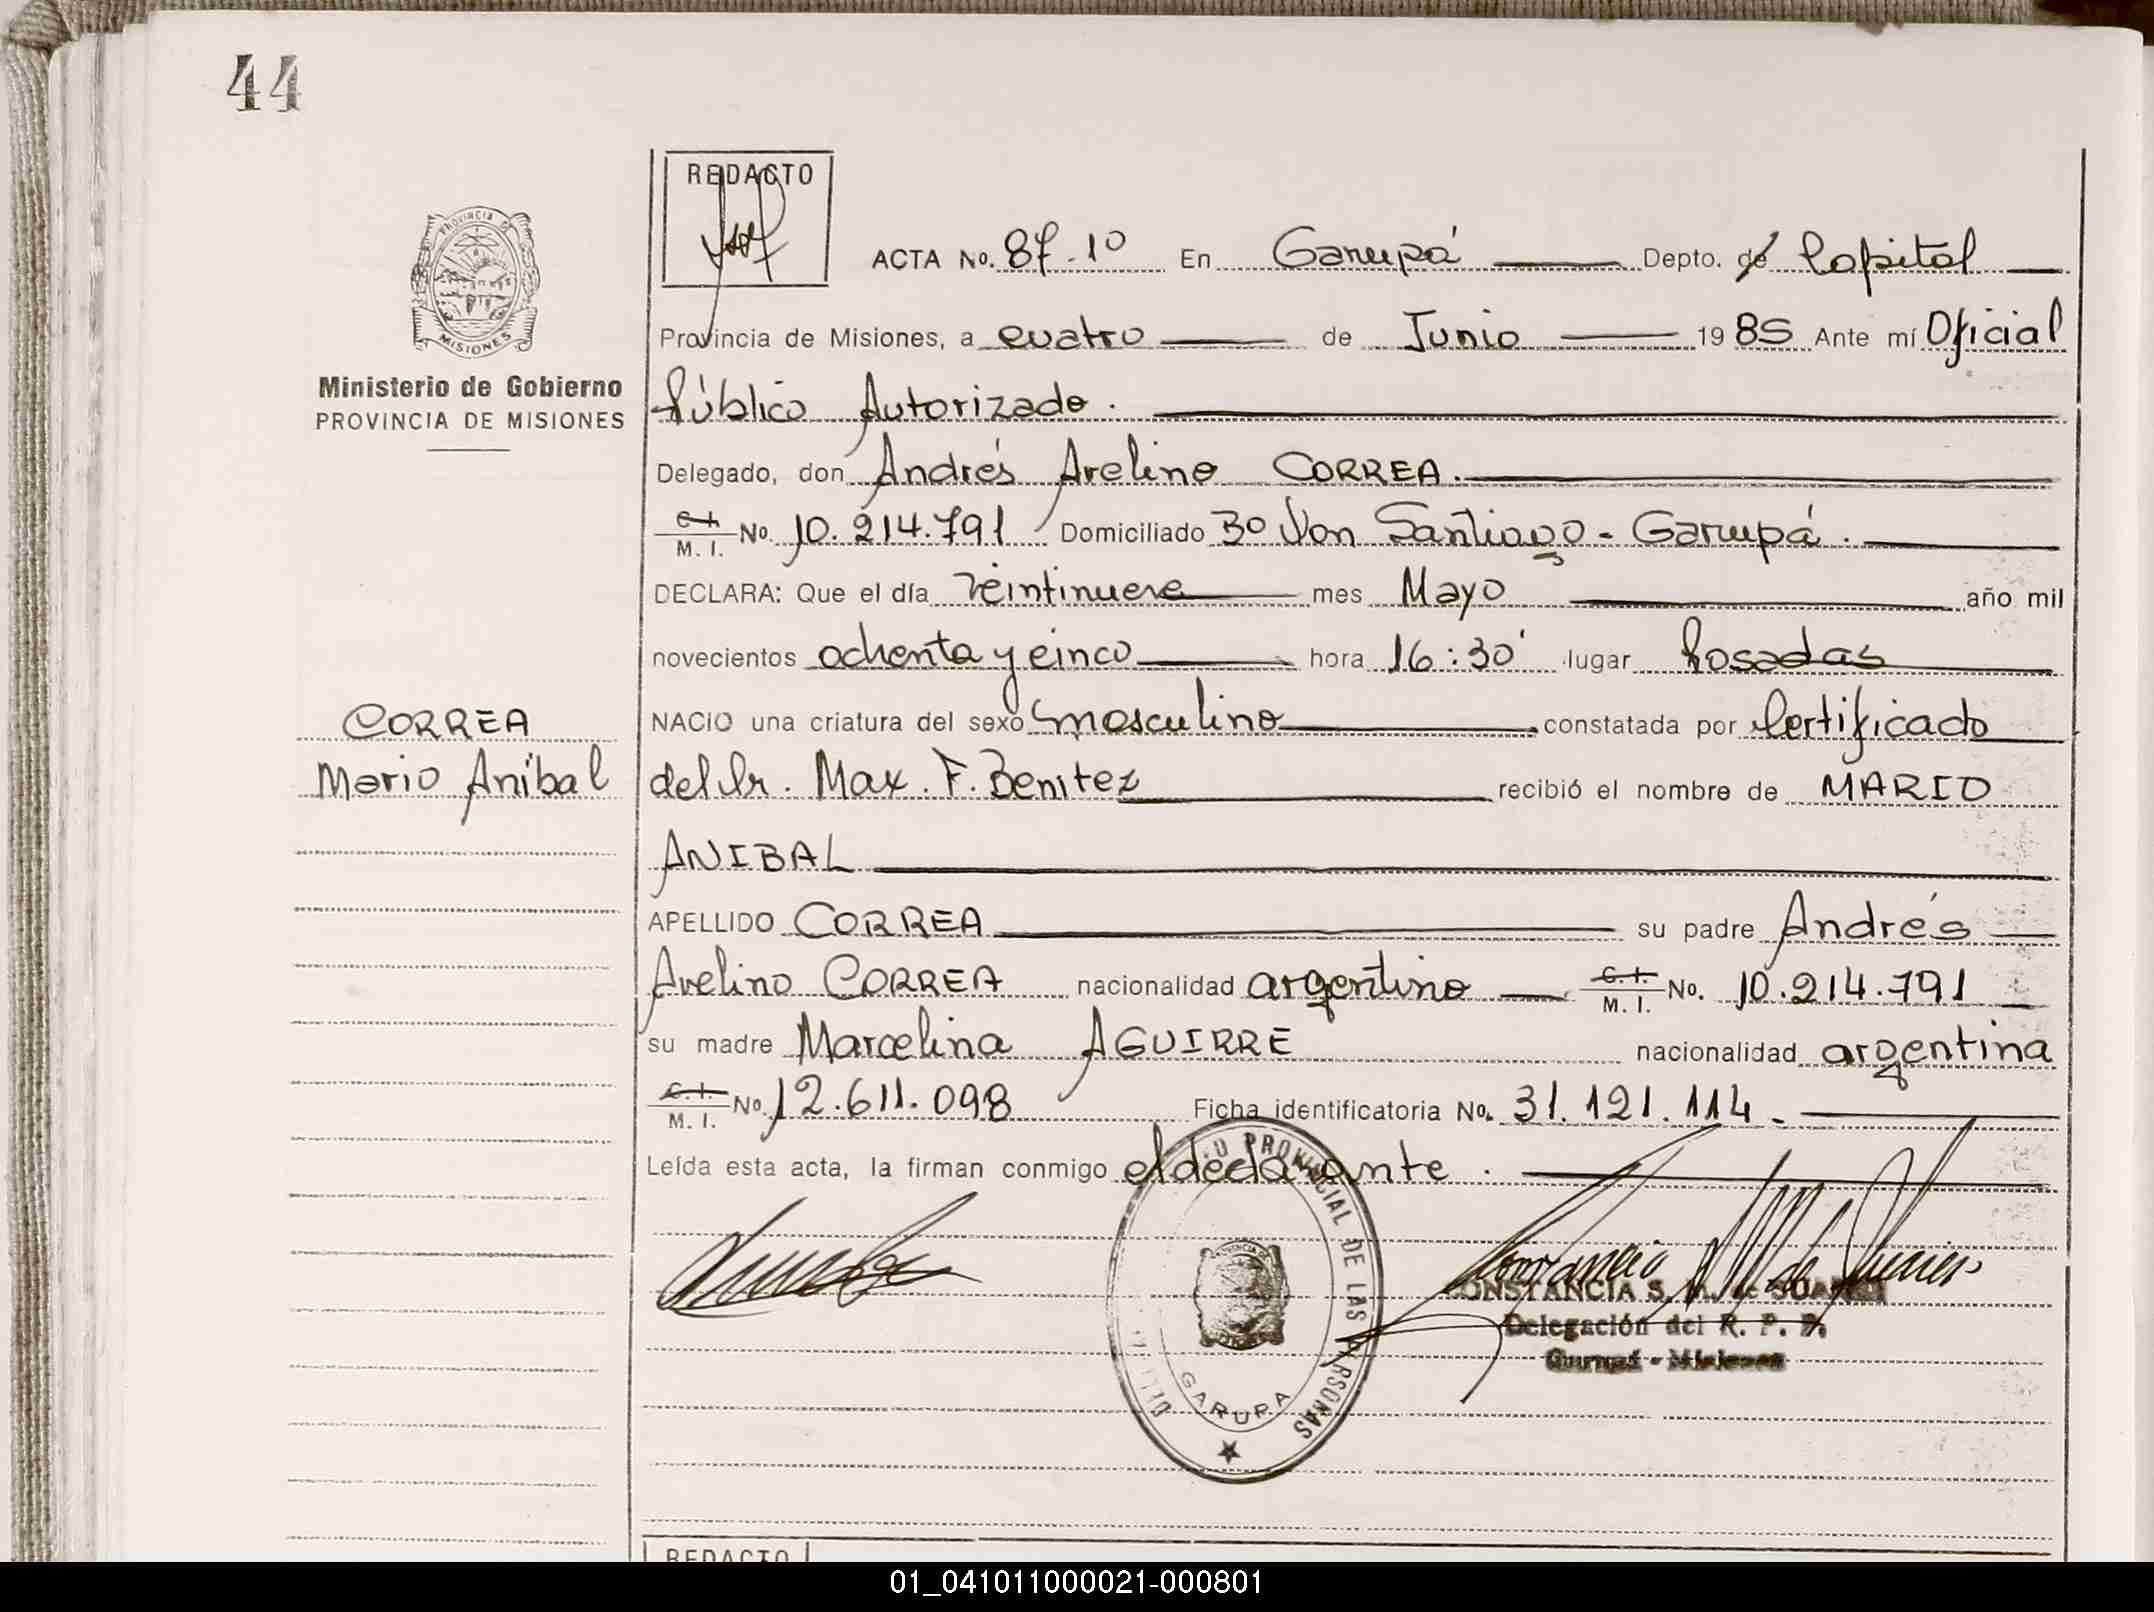 44
REDACTO
ACTA No. 87.1º En Garupá Depto. de Capital
PROVINCIA DE
MISIONES
Provincia de Misiones, a cuatro de Junio 1985 Ante mí Oficial
Ministerio de Gobierno
PROVINCIA DE MISIONES
Público Autorizado.
Delegado, don Andrés Avelino CORREA.
C. I. M. I. No. 10.214.791 Domiciliado Bº Don Santiago - Garupá.
DECLARA: Que el día veintinueve mes Mayo año mil
novecientos ochenta y cinco hora 16:30' lugar Posadas
CORREA
Mario Anibal
NACIO una criatura del sexo masculino constatada por Certificado
del Dr. Max. F. Benitez recibió el nombre de MARIO
ANIBAL
APELLIDO CORREA su padre Andrés
Avelino CORREA nacionalidad argentino C. I. M. I. No. 10.214.791
su madre Marcelina AGUIRRE nacionalidad argentina
C. I. M. I. No. 12.611.098 Ficha identificatoria No. 31.121.114-
Leída esta acta, la firman conmigo el declarante.
PROVINCIAL DE LAS PERSONAS
GARUPA
CONSTANCIA S. M. de SUAREZ
Delegación del R. P. P.
Garupá - Misiones
REDACTO
01_041011000021-000801